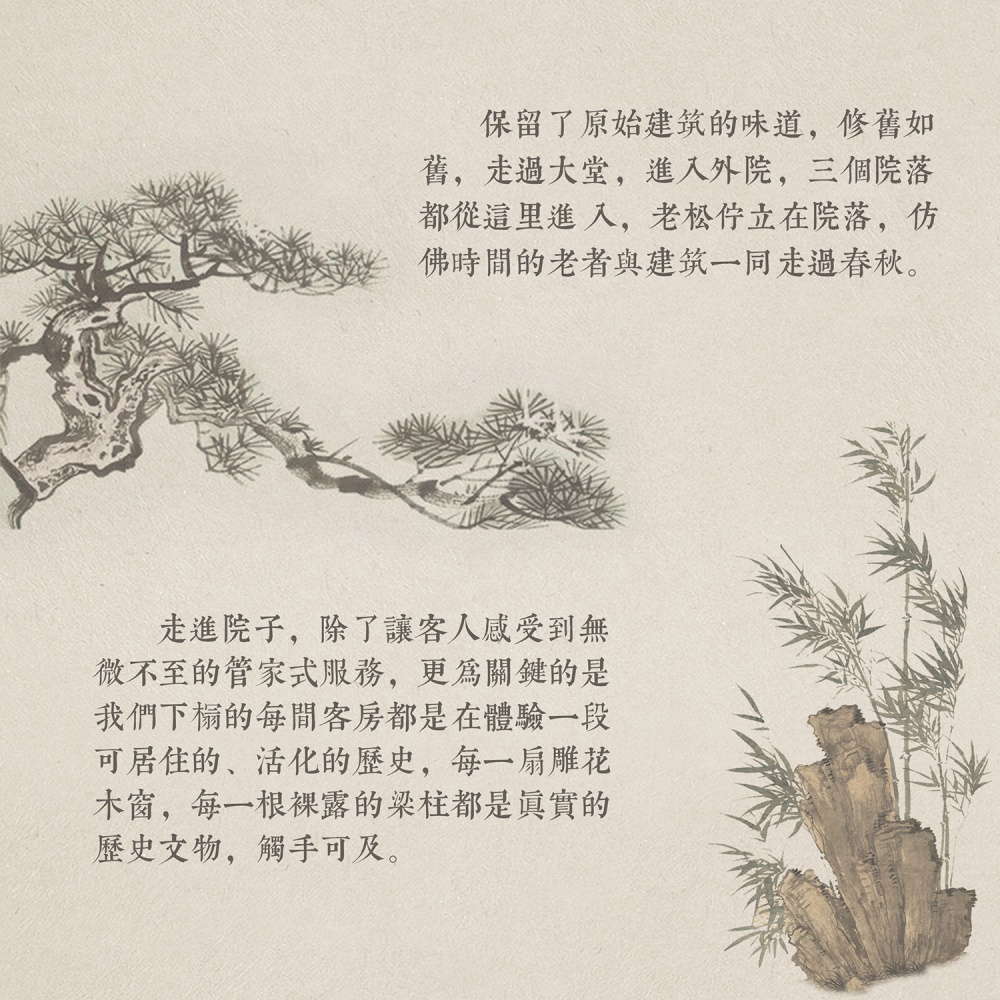 保留了原始建筑的味道，修舊如
舊，走過大堂，進入外院，三個院落
都從這里進入，老松佇立在院落，仿
佛時間的老者與建筑一同走過春秋。
走進院子，除了讓客人感受到無
微不至的管家式服務，更爲關鍵的是
我們下榻的每間客房都是在體驗一段
可居住的、活化的歷史，每一扇雕花
木窗，每一根裸露的梁柱都是眞實的
歷史文物，觸手可及。